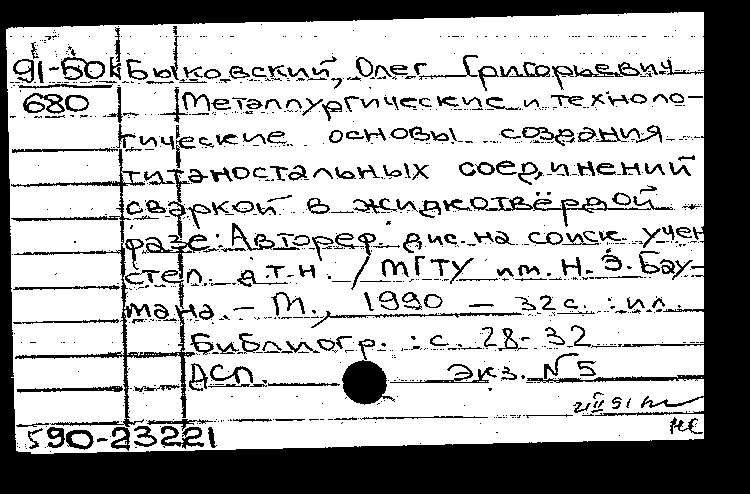 91-БОК Быковский, Олег Григорьевич
680 Металлургические и техноло-
гические основы создания
титаностальных соединений
сваркой в жидкотвёрдой
фазе: Автореф. дис. на соиск учен
степ. д.т.н. / МГТУ им. Н.Э. Бау-
мана. - М., 1990 - 32 с. : ил.
Библиогр. : с. 28-32
ДСП. экз. N 5
590-23221
нс